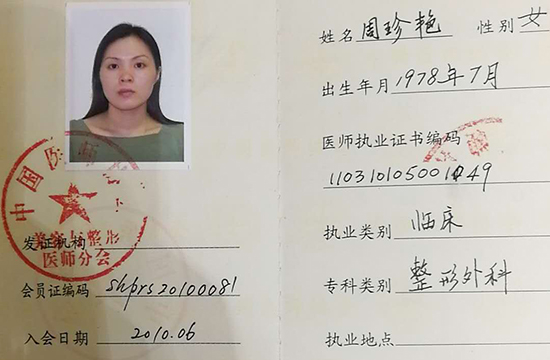 中国医师
美容与整形
医师分会
发证机构
会员证编码 shprs20100081
入会日期 2010.06
姓名 周珍艳 性别 女
出生年月 1978年7月
医师执业证书编码
执业类别 临床
专科类别 整形外科
执业地点